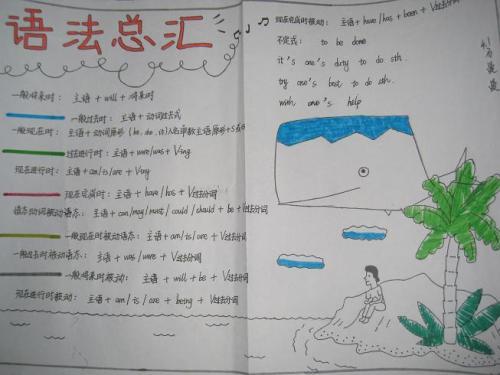 语法总汇
一般将来时: 主语 + will + 将来时
一般过去时: 主语 + 动词过去式
一般现在时: 主语 + 动词原形 (be, do,
过去进行时: 主语 + were/was + Ving
现在进行时: 主语 + am/is/are + Ving
现在完成时: 主语 + have/has + V过去分词
情态动词被动语态: 主语 + can/may/must/could/should + be + V过去分词
一般现在时被动语态: 主语 + am/is/are + V过去分词
一般过去时被动语态: 主语 + was/were + V过去分词
一般将来时被动: 主语 + will + be + V过去分词
现在进行时被动: 主语 + am/is/are + being + V过去分词
现在完成时被动: 主语 + have/has + been + V过去分词
不定式: to be done
it's one's dirty to do sth.
try one's best to do sth.
with one's help